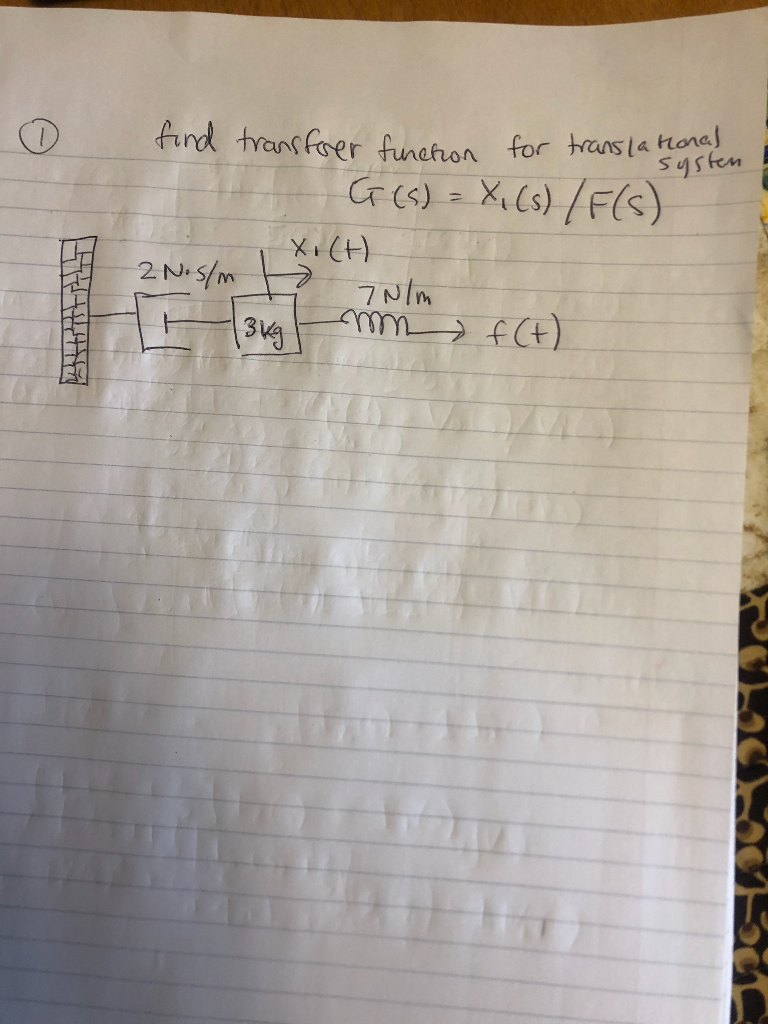 ①
find transferer function for translational
system
G(s) = X₁(s) / F(s)
X₁(t)
2 N·s/m
7 N/m
3 kg
f(t)